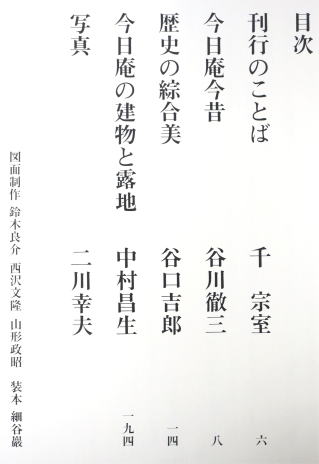 目次
刊行のことば 千 宗室 六
今日庵今昔 谷川徹三 八
歴史の綜合美 谷口吉郎 一四
今日庵の建物と露地 中村昌生 一九四
写真 二川幸夫
図面制作 鈴木良介 西沢文隆 山形政昭 装本 細谷巖